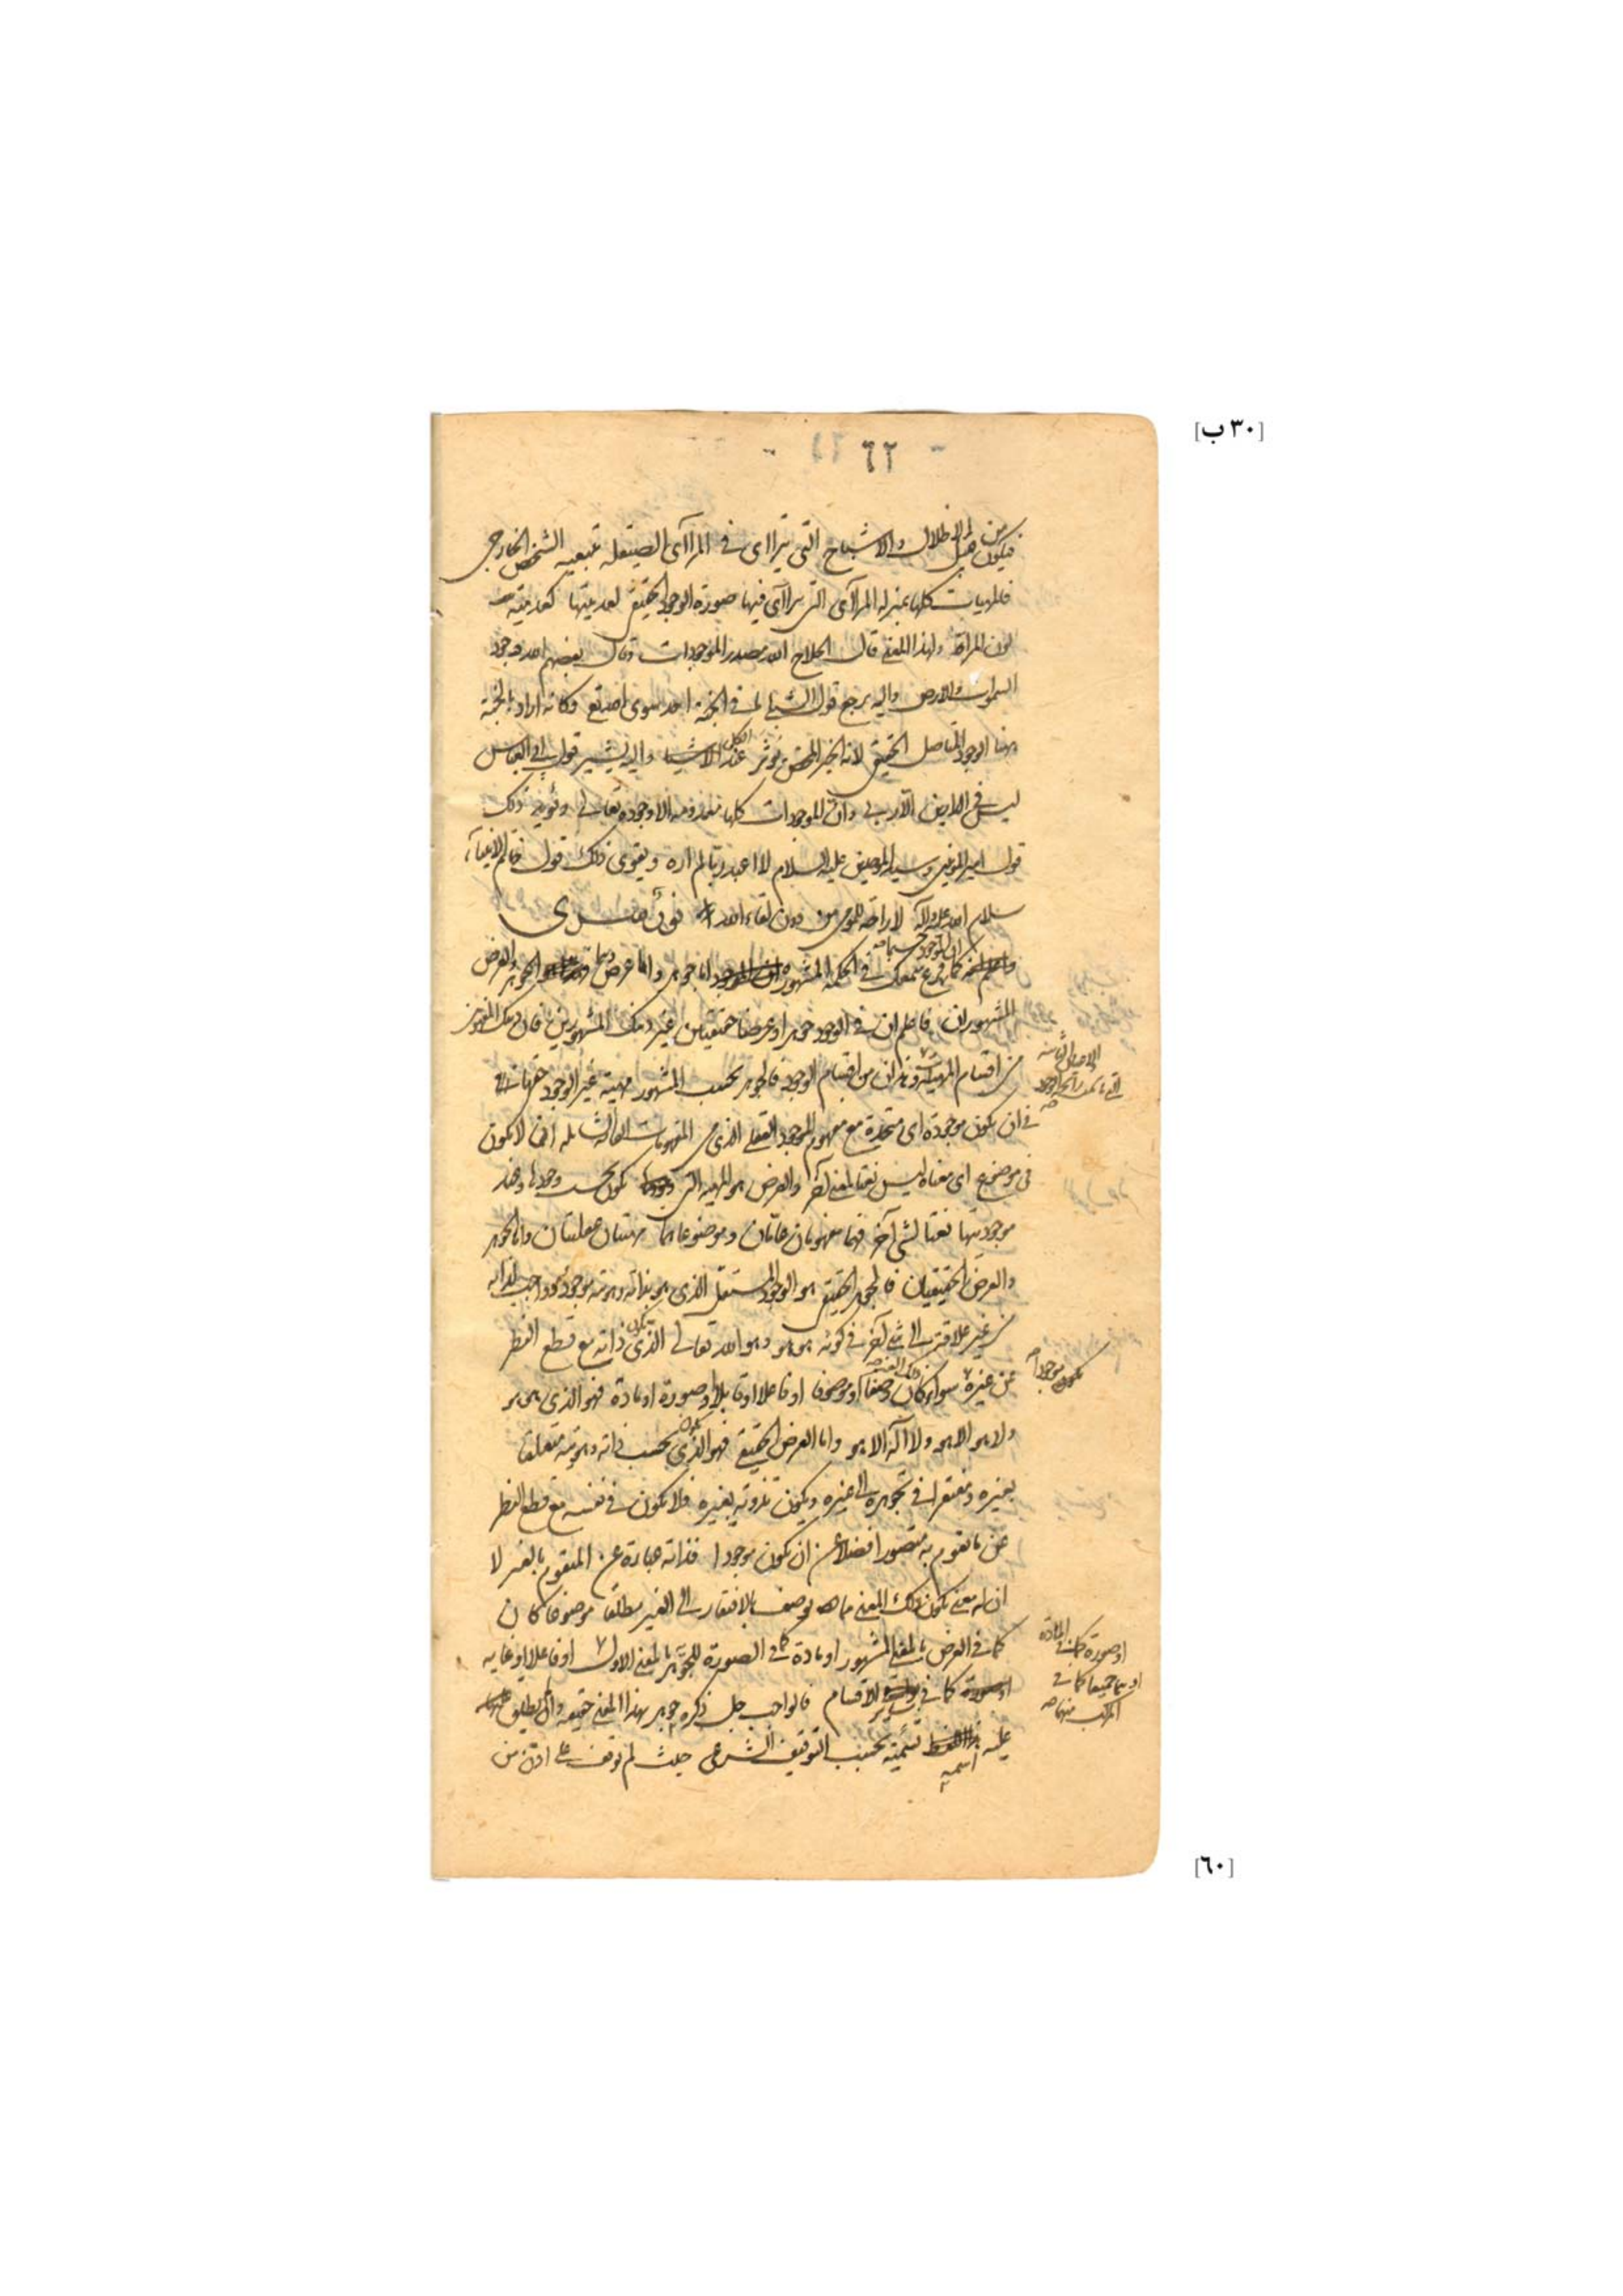 [٣٠ ب]
٦٢
فيكون من قبيل الاظلال والاشباح التي تتراای في المراآی الصيقلة بتبعية الشخص الخارجی
فالمهيات كلها بمنزلة المراآی التی تراآی فيها صورة الوجود الحقيقی لعدميتها كعدمية
لون المراة ولهذا المعنی قال الحلاج الله مصدر الموجودات وقال بعضهم الله وجود
السموات والارض واليه يرجع قول الشبلی ليس فی الجنة احد سوی الله تع وكانه اراد بالجنة
هذا الوجود المتاصل الحقيقی لانه الخير المحض ويوثر عند الكل الاشيا واليه يشير قول ابی العباس
ليس فی الدارين الا ربی وان الموجودات كلها معدومة الا وجوده تعالی ويؤيد ذلك
قول امير المومنين وسيد الموحدين عليه السلام لا اعبد ربا لم اره ويقوی ذلك قول خاتم الانبيآء
سلام الله عليه وآله لا راحة للمومن دون لقاء الله
كما قرع سمعك فی الحكمة المشهورة ان الموجود اما جوهر واما عرض وهما الجوهر والعرض
المشهوران فاعلم ان فی الوجود جوهرا وعرضا حقيقيين غير ذينك المشهورين فان ذينك المشهورين
من اقسام المهية وهذان من اقسام الوجود فالجوهر بحسب المشهور مهية غير الوجود حقها
فی ان يكون موجودة ای متحدة مع مفهوم الموجود العقلی الذی من المفهومات العامة الشاملة ان لا يكون
فی موضوع ای معناه ليس نعتا لمعنی آخر والعرض هو المهية التی يكون بحسب وجودها وعند
موجوديتها نعتا لشیء آخر فهما مفهومان عامان وموضوعاهما مهيتان عقليتان واما الجوهر
والعرض الحقيقيان فالجوهر الحقيقی هو الوجود المستقل الذی هو بذاته وهويته موجود وواجب لذاته
من غير علاقة الی شیء آخر فی كونه هو هو وهو الله تعالی الذی يكون ذاته مع قطع النظر
عن غيره سواء كان ذلك الغير وصفا او موصوفا او فاعلا او قابلا او صورة او مادة فهو الذی هو هو
ولا هو الا هو ولا اله الا هو واما العرض الحقيقی فهو الذی يكون بحسب ذاته وهويته متعلقا
بغيره ومفتقرا فی تجوهره الی غيره ويكون تذوته بغيره فلا يكون فی نفسه مع قطع النظر
عن ما تقوم به متصورا فضلا عن ان يكون موجودا فذاته عبارة عن المتقوم بالغير لا
ان له معنی يكون ذلك المعنی مما يوصف بالافتقار الی الغير مطلقا موضوعا كان
كما فی العرض بالمعنی المشهور او مادة كما فی الصورة للجوهر بالمعنی الاول او فاعلا او غاية
كما فی سائر الاقسام فالواجب جل ذكره جوهر بهذا المعنی حقيقة وان لم يطلق
عليه اسمه تسمية بحسب التوقيف الشرعی حيث لم توقف علی اذن من
يكون موجودا صح
او صورة كما فی المادة
او هما جميعا كما فی
المركب منهما صح
[٦٠]